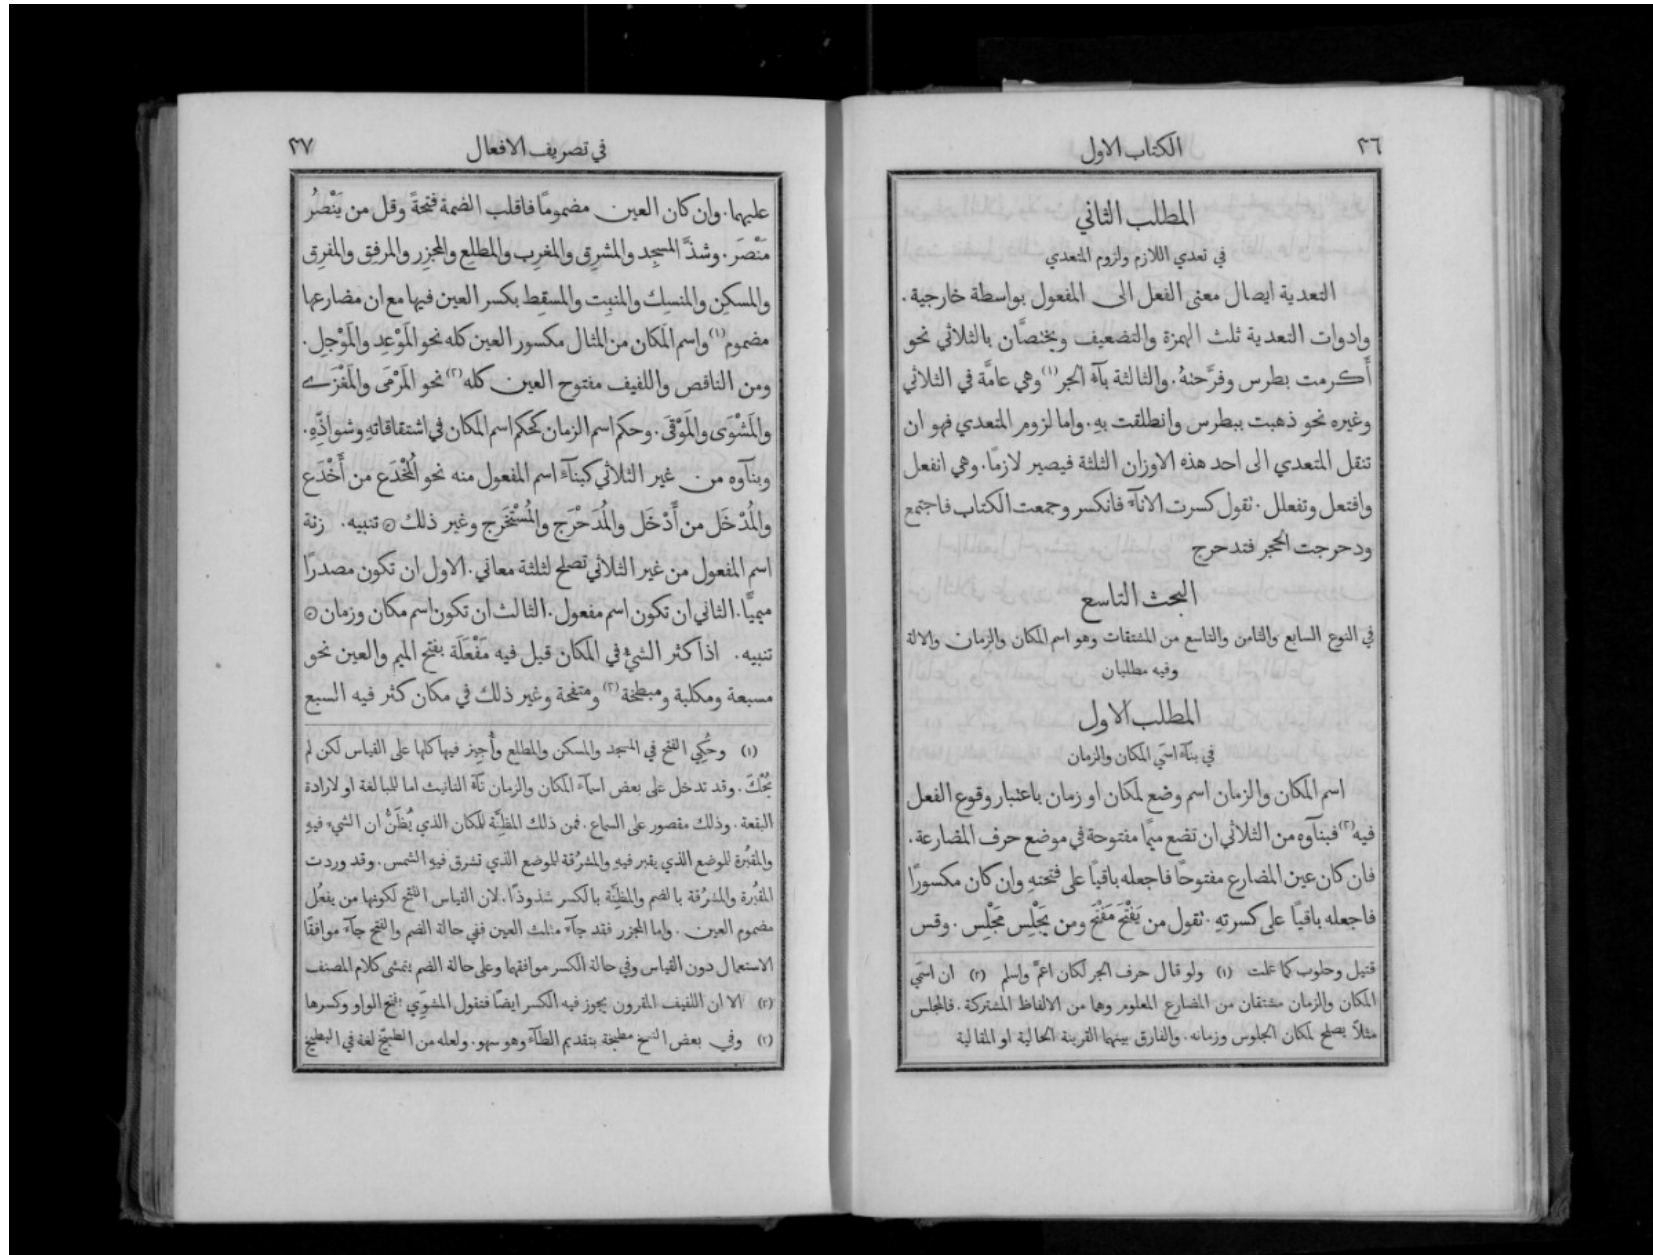 ٣٦
الكتاب الاول
المطلب الثاني
في تعدي اللازم ولزوم المتعدي
التعدية ايصال معنى الفعل الى المفعول بواسطة خارجية.
وادوات التعدية ثلث الهمزة والتضعيف ويختصَّان بالثلاثي نحو
أَكرمت بطرس وفرَّحتهُ. والثالثة بآء الجر (١) وهي عامَّة في الثلاثي
وغيره نحو ذهبت ببطرس وانطلقت بهِ. واما لزوم المتعدي فهو ان
تنقل المتعدي الى احد هذه الاوزان الثلثة فيصير لازمًا. وهي انفعل
وافتعل وتفعلل. تقول كسرت الانآء فانكسر وجمعت الكتاب فاجتمع
ودحرجت الحجر فتدحرج
البحث التاسع
في النوع السابع والثامن والتاسع من المشتقات وهو اسم المكان والزمان والالة
وفيه مطلبان
المطلب الاول
في بنآء اسمَي المكان والزمان
اسم المكان والزمان اسم وضع لمكان او زمان باعتبار وقوع الفعل
فيه (٢) فبنآوه من الثلاثي ان تضع ميمًا مفتوحة في موضع حرف المضارعة.
فان كان عين المضارع مفتوحًا فاجعله باقيًا على فتحتهِ وان كان مكسورًا
فاجعله باقيًا على كسرتهِ. تقول من يَفْتَح مَفْتَح ومن يَجْلِس مَجْلِس. وقس
قتيل وحلوب كما علمت (١) ولو قال حرف الجر لكان اعمّ واسلم (٢) ان اسمَي
المكان والزمان مشتقان من المضارع المعلوم وهما من الالفاظ المشتركة. فالمجلس
مثلاً يصلح لمكان الجلوس وزمانه. والفارق بينهما القرينة الحالية او المقالية
٣٧
في تصريف الافعال
عليهما. وان كان العين مضمومًا فاقلب الضمة فتحةً وقل من يَنْصُر
مَنْصَر. وشذَّ المسجِد والمشرِق والمغرِب والمطلِع والمجزِر والمرفِق والمفرِق
والمسكِن والمنسِك والمنبِت والمسقِط بكسر العين فيها مع ان مضارعها
مضموم (١) واسم المكان من المثال مكسور العين كله نحو المَوْعِد والمَوْجِل.
ومن الناقص واللفيف مفتوح العين كله (٢) نحو المَرْمَى والمَغْزَى
والمَشْوَى والمَوْقَى. وحكم اسم الزمان كحكم اسم المكان في اشتقاقاتهِ وشواذِّهِ.
وبنآوه من غير الثلاثي كبنآء اسم المفعول منه نحو المُخْدَع من أَخْدَع
والمُدْخَل من أَدْخَل والمُدَحْرَج والمُسْتَخْرَج وغير ذلك ۞ تنبيه. زنة
اسم المفعول من غير الثلاثي تصلح لثلثة معاني. الاول ان تكون مصدرًا
ميميًّا. الثاني ان تكون اسم مفعول. الثالث ان تكون اسم مكان وزمان ۞
تنبيه. اذا كثر الشيُ في المكان قيل فيه مَفْعَلَة بفتح الميم والعين نحو
مسبعة ومكلبة ومبطخة (٣) ومتفحة وغير ذلك في مكان كثر فيه السبع
(١) وحُكِي الفتح في المسجد والمسكن والمطلع وأُجيز فيها كلها على القياس لكن لم
يُحْكَ. وقد تدخل على بعض اسمآء المكان والزمان تآء التانيث اما للمبالغة او لارادة
البقعة. وذلك مقصور على السماع. فمن ذلك المظنَّة للمكان الذي يُظَنُّ ان الشيء فيهِ
والمقبُرة للموضع الذي يقبر فيهِ والمشرُقة للموضع الذي تشرق فيهِ الشمس. وقد وردت
المقبُرة والمشرُقة بالضم والمظنَّة بالكسر شذوذًا. لان القياس الفتح لكونها من يفعُل
مضموم العين. واما المجزر فقد جآء مثلث العين ففي حالة الضم والفتح جآء موافقًا
الاستعمال دون القياس وفي حالة الكسر موافقهما وعلى حالة الضم يتمشى كلام المصنف
(٢) الا ان اللفيف المقرون يجوز فيه الكسر ايضًا فتقول المشوِي بفتح الواو وكسرها
(٣) وفي بعض النسخ مطبخة بتقديم الطآء وهو سهو. ولعله من الطبيّخ لغة في البطيخ